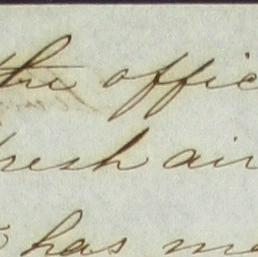 the offic
resh air
has me